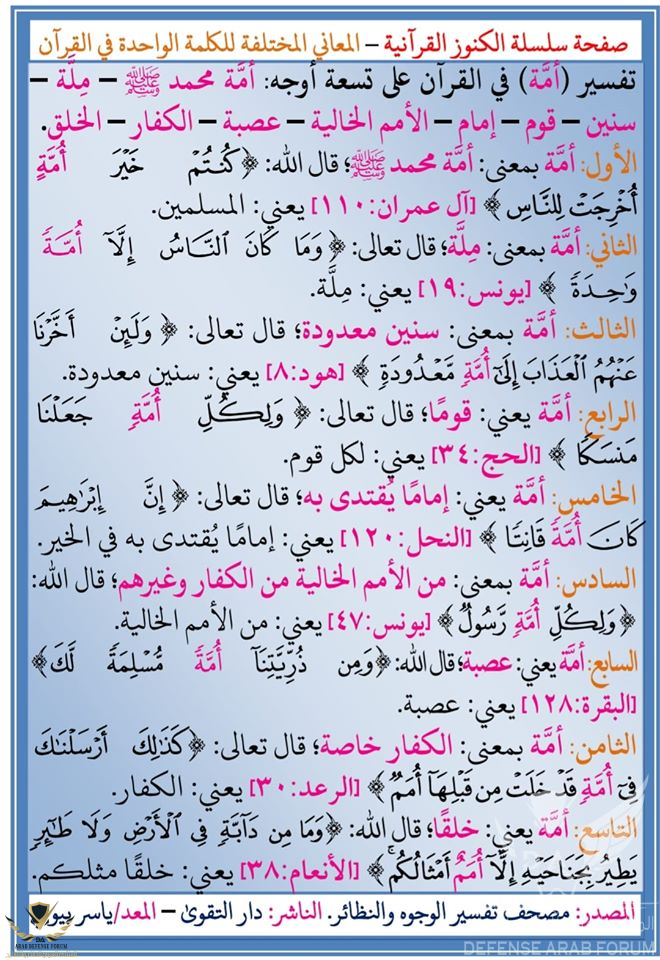 صفحة سلسلة الكنوز القرآنية – المعاني المختلفة للكلمة الواحدة في القرآن
تفسير (أمَّة) في القرآن على تسعة أوجه: أمَّة محمد ﷺ – مِلَّة –
سنين – قوم – إمام – الأمم الخالية – عصبة – الكفار – الخلق.
الأول: أمَّة بمعنى: أمَّة محمد ﷺ؛ قال الله: ﴿كُنتُمْ خَيْرَ أُمَّةٍ
أُخْرِجَتْ لِلنَّاسِ﴾ [آل عمران:١١٠] يعني: المسلمين.
الثاني: أمَّة بمعنى: مِلَّة؛ قال تعالى: ﴿وَمَا كَانَ ٱلنَّاسُ إِلَّآ أُمَّةً
وَٰحِدَةً﴾ [يونس:١٩] يعني: مِلَّة.
الثالث: أمَّة بمعنى: سنين معدودة؛ قال تعالى: ﴿وَلَئِنْ أَخَّرْنَا
عَنْهُمُ ٱلْعَذَابَ إِلَىٰٓ أُمَّةٍ مَّعْدُودَةٍ﴾ [هود:٨] يعني: سنين معدودة.
الرابع: أمَّة يعني: قومًا؛ قال تعالى: ﴿وَلِكُلِّ أُمَّةٍ جَعَلْنَا
مَنسَكًا﴾ [الحج:٣٤] يعني: لكل قوم.
الخامس: أمَّة يعني: إمامًا يُقتدى به؛ قال تعالى: ﴿إِنَّ إِبْرَٰهِيمَ
كَانَ أُمَّةً قَانِتًا﴾ [النحل:١٢٠] يعني: إمامًا يُقتدى به في الخير.
السادس: أمَّة بمعنى: من الأمم الخالية من الكفار وغيرهم؛ قال الله:
﴿وَلِكُلِّ أُمَّةٍ رَّسُولٌ﴾ [يونس:٤٧] يعني: من الأمم الخالية.
السابع: أمَّة يعني: عصبة؛ قال الله: ﴿وَمِن ذُرِّيَّتِنَآ أُمَّةً مُّسْلِمَةً لَّكَ﴾
[البقرة:١٢٨] يعني: عصبة.
الثامن: أمَّة بمعنى: الكفار خاصة؛ قال تعالى: ﴿كَذَٰلِكَ أَرْسَلْنَٰكَ
فِىٓ أُمَّةٍ قَدْ خَلَتْ مِن قَبْلِهَآ أُمَمٌ﴾ [الرعد:٣٠] يعني: الكفار.
التاسع: أمَّة يعني: خلقًا؛ قال الله: ﴿وَمَا مِن دَآبَّةٍ فِى ٱلْأَرْضِ وَلَا طَٰٓئِرٍ
يَطِيرُ بِجَنَاحَيْهِ إِلَّآ أُمَمٌ أَمْثَالُكُم﴾ [الأنعام:٣٨] يعني: خلقًا مثلكم.
المصدر: مصحف تفسير الوجوه والنظائر. الناشر: دار التقوىٰ – المعد/ياسر بيومي
ARAB DEFENSE FORUM
DEFENSE ARAB FORUM